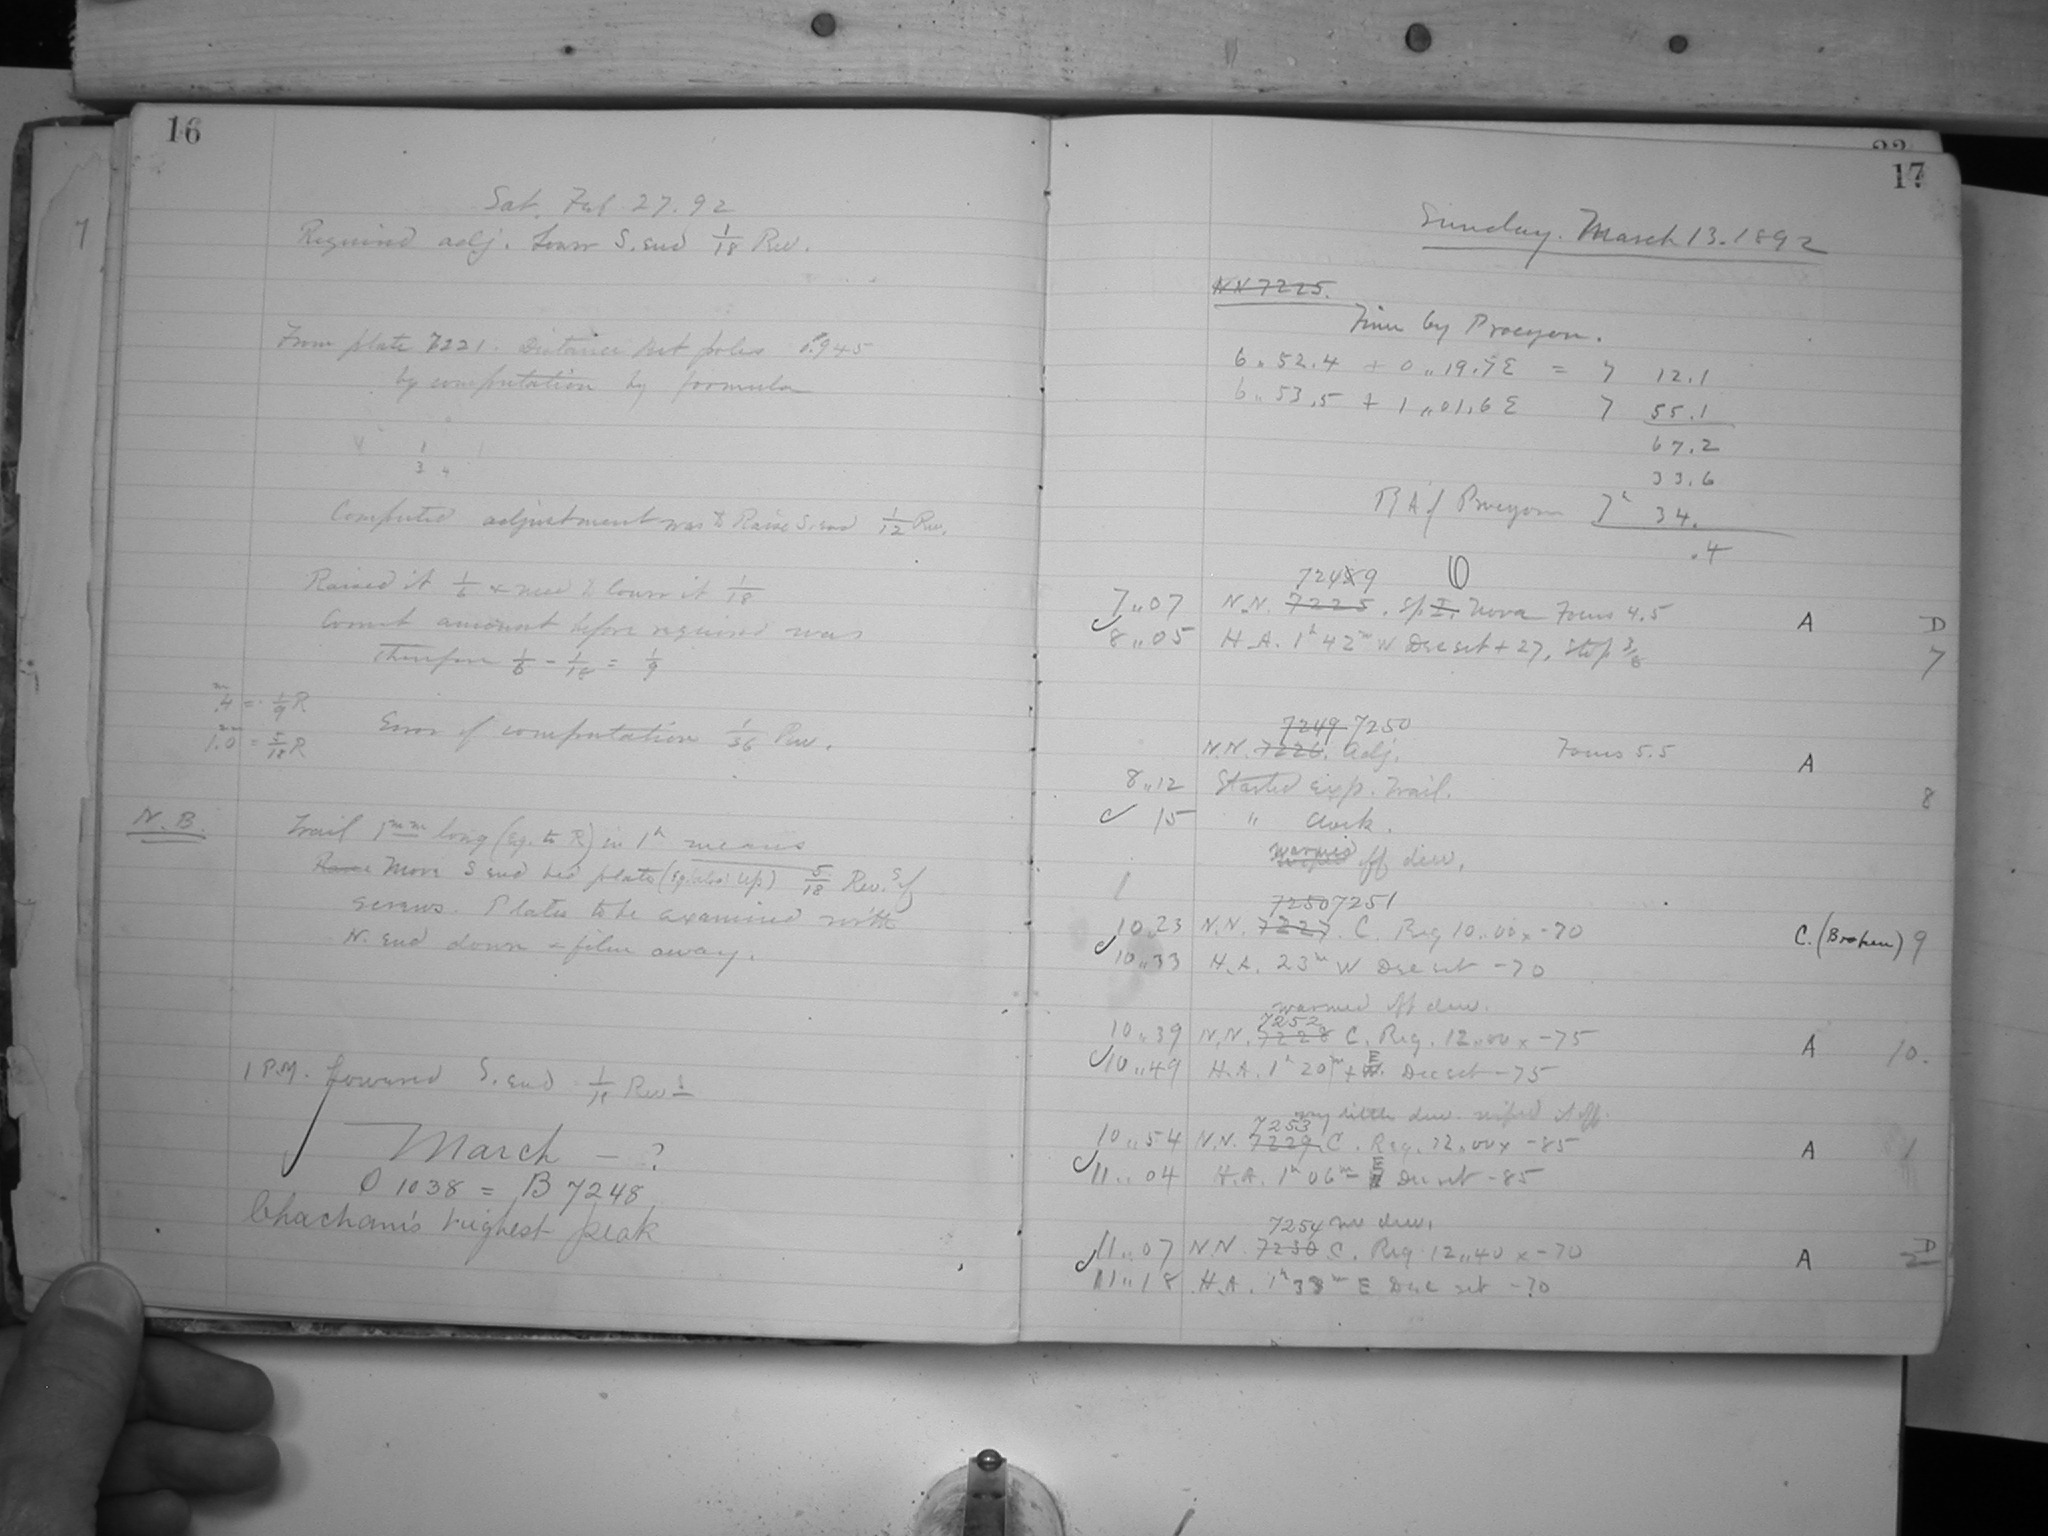 16
Sat. Feb 27. 92
Required adj. Lower S. end 1/18 Rev.
From plate 7221. Distance bet poles 0.945
by computation by formula
Computed adjustment was to Raise S. end 1/12 Rev.
Raised it 1/6 & need to lower it 1/18
Correct amount before required was
therefore 1/6 - 1/18 = 1/9
.4m = 1/9 R
1.0 = 5/18 R
Error of computation 1/36 Rev.
N.B.
Trail 1mm long (Eq. to R) in 1h means
Raise Move S end bed plate up) 5/18 Rev.s of
screws. Plates to be examined with
N. end down & film away.
1 P.M. Lowered S. end 1/18 Rev
March - ?
O 1038 = B 7248
Chachani's highest peak
7
22
17
Sunday. March 13. 1892
N.N 7225.
Time by Procyon.
6.. 52.4 + 0.. 19.7 E = 7 12.1
6.. 53.5 + 1.. 01.6 E 7 55.1
67.2
33.6
R A of Procyon 7h 34.
.4
72489
7..07 N.N. 7225. Sp I. Nova Focus 4.5 A D
8..05 H.A. 1h 42m W Dec set + 27. Stop 3/8 7
7249 7250
N.N. 7226. adj. Focus 5.5 A
8..12 Started exp. Trail. 8
15 " Clock.
warmed wiped off dew.
7250 7251
10.23 N.N. 7227. C. Reg 10..00 x -70 C. (Broken) 9
10..33 H.A. 23m W Dec set -70
warmed off dew.
7252
10..39 N.N. 7228 C. Reg. 12..00 x -75 A 10.
10..49 H.A. 1h 20m + E Dec set -75
very little dew. wiped it off.
7253
10..54 N.N. 7229 C. Reg. 12..00 x -85 A 1
11..04 H.A. 1h 06m - E Dec set -85
7254 no dew.
11..07 N.N. 7230 C. Reg 12..40 x -70 A D
11..18 H.A. 1h 38m E Dec set -70 2